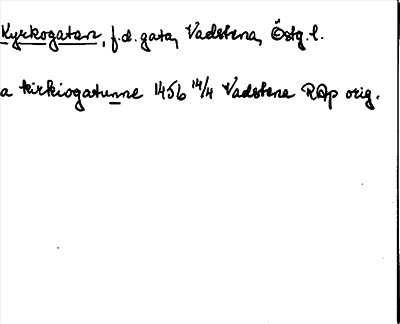 Kyrkogatan, f.d. gata, Vadstena, Östg.l.
a kirkiogatunne 1456 14/4 Vadstena RAp orig.